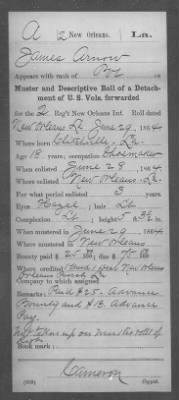 A 2 New Orleans. La.
James Arnow
Appears with rank of Pvt. on
Muster and Descriptive Roll of a Detach-
ment of U. S. Vols. forwarded
for the 2 Reg't New Orleans Inf. Roll dated
New Orleans La June 29, 1864
Where born La.
Age 18 years; occupation Shoemaker
When enlisted June 28, 1864
Where enlisted New Orleans La
For what period enlisted 3 years.
Eyes Hazel; hair Lt
Complexion Lt; height 5 ft. 3½ in.
When mustered in June 29, 1864
Where mustered in New Orleans
Bounty paid $ 25 00/100; due $ 75 00/100
Where credited New Orleans
Orleans Parish La
Company to which assigned
Remarks: Paid $25. Advance
Bounty and $13. Advance
Pay.
Not taken up on muster rolls of
Book mark:
Cameron
(339) Copyist.